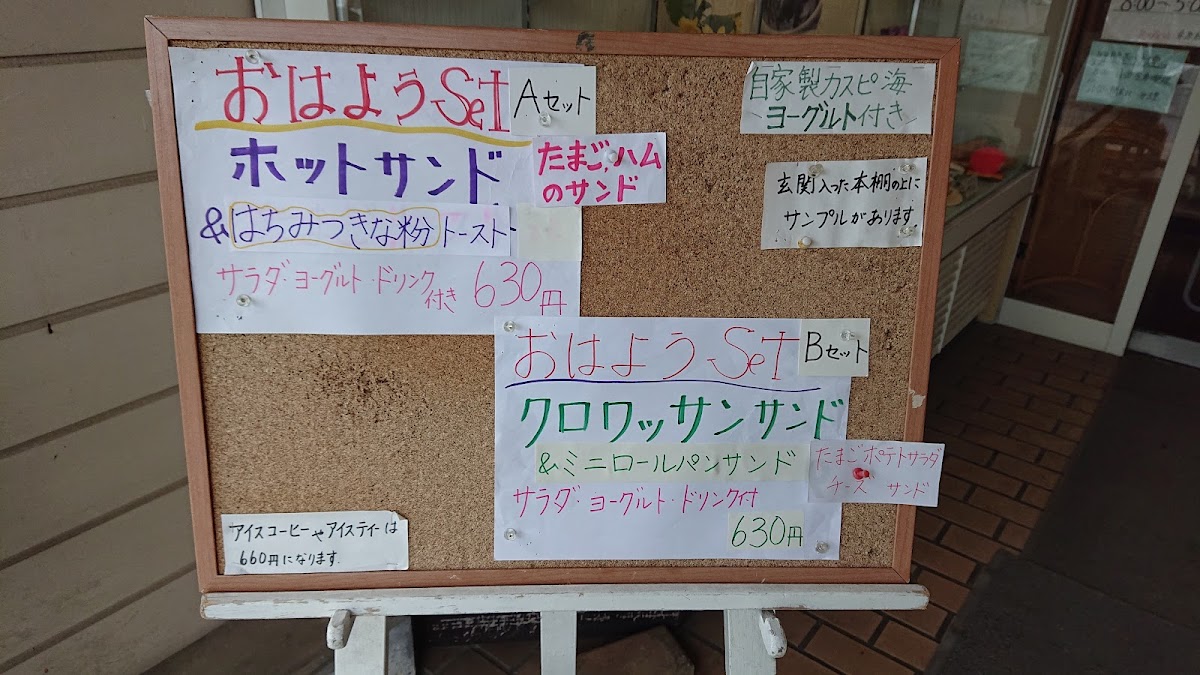 おはようSet Aセット
ホットサンド
たまご、ハム
のサンド
&はちみつきな粉トースト
サラダ・ヨーグルト・ドリンク付き 630円
自家製カスピ海
ヨーグルト付き
玄関入った本棚の上に
サンプルがあります。
おはようSet Bセット
クロワッサンサンド
&ミニロールパンサンド
たまごポテトサラダ
チーズ サンド
サラダ・ヨーグルト・ドリンク付
630円
アイスコーヒーやアイスティーは
660円になります。